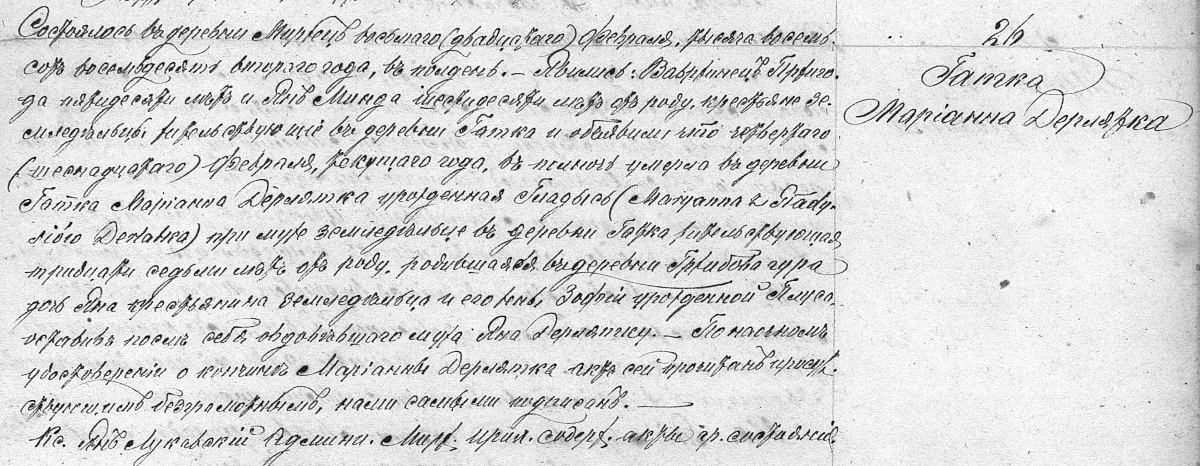 26
Гатка
Маріанна Дерлятка
Состоялось въ деревни Миржецъ восьмаго (двадцатаго) Февраля, тысяча восемь-
сотъ восемьдесятъ втораго года, въ полдень. — Явились: Вавринецъ Приго-
да пятидесяти лѣтъ и Янъ Минда шестидесяти лѣтъ отъ роду, крестьяне зе-
мледѣльцы жительствующіе въ деревни Гатка и объявили что четвертаго
(шеснадцатаго) Февраля, текущаго года, въ полночь умерла въ деревни
Гатка Маріанна Дерлятка урожденная Гладысь (Maryanna z
Derlatka) при мужѣ земледѣльце въ деревни Гатка жительствующая
тридцати седьми лѣтъ отъ роду, родившаяся въ деревни Грибова гура
дочь Яна крестьянина земледѣльца и его жены Зофіи урожденной
оставивъ послѣ себя овдовѣвшаго мужа Яна Дерлятку. — По настномъ
удостовереніи о кончинѣ Маріанны Дерлятка актъ сей прочитанъ присут-
ствующимъ безграмотнымъ, нами самыми подписанъ. —
Кс. Янъ Лукавскій Админи. прих. содерж. акты гр. состоянія.